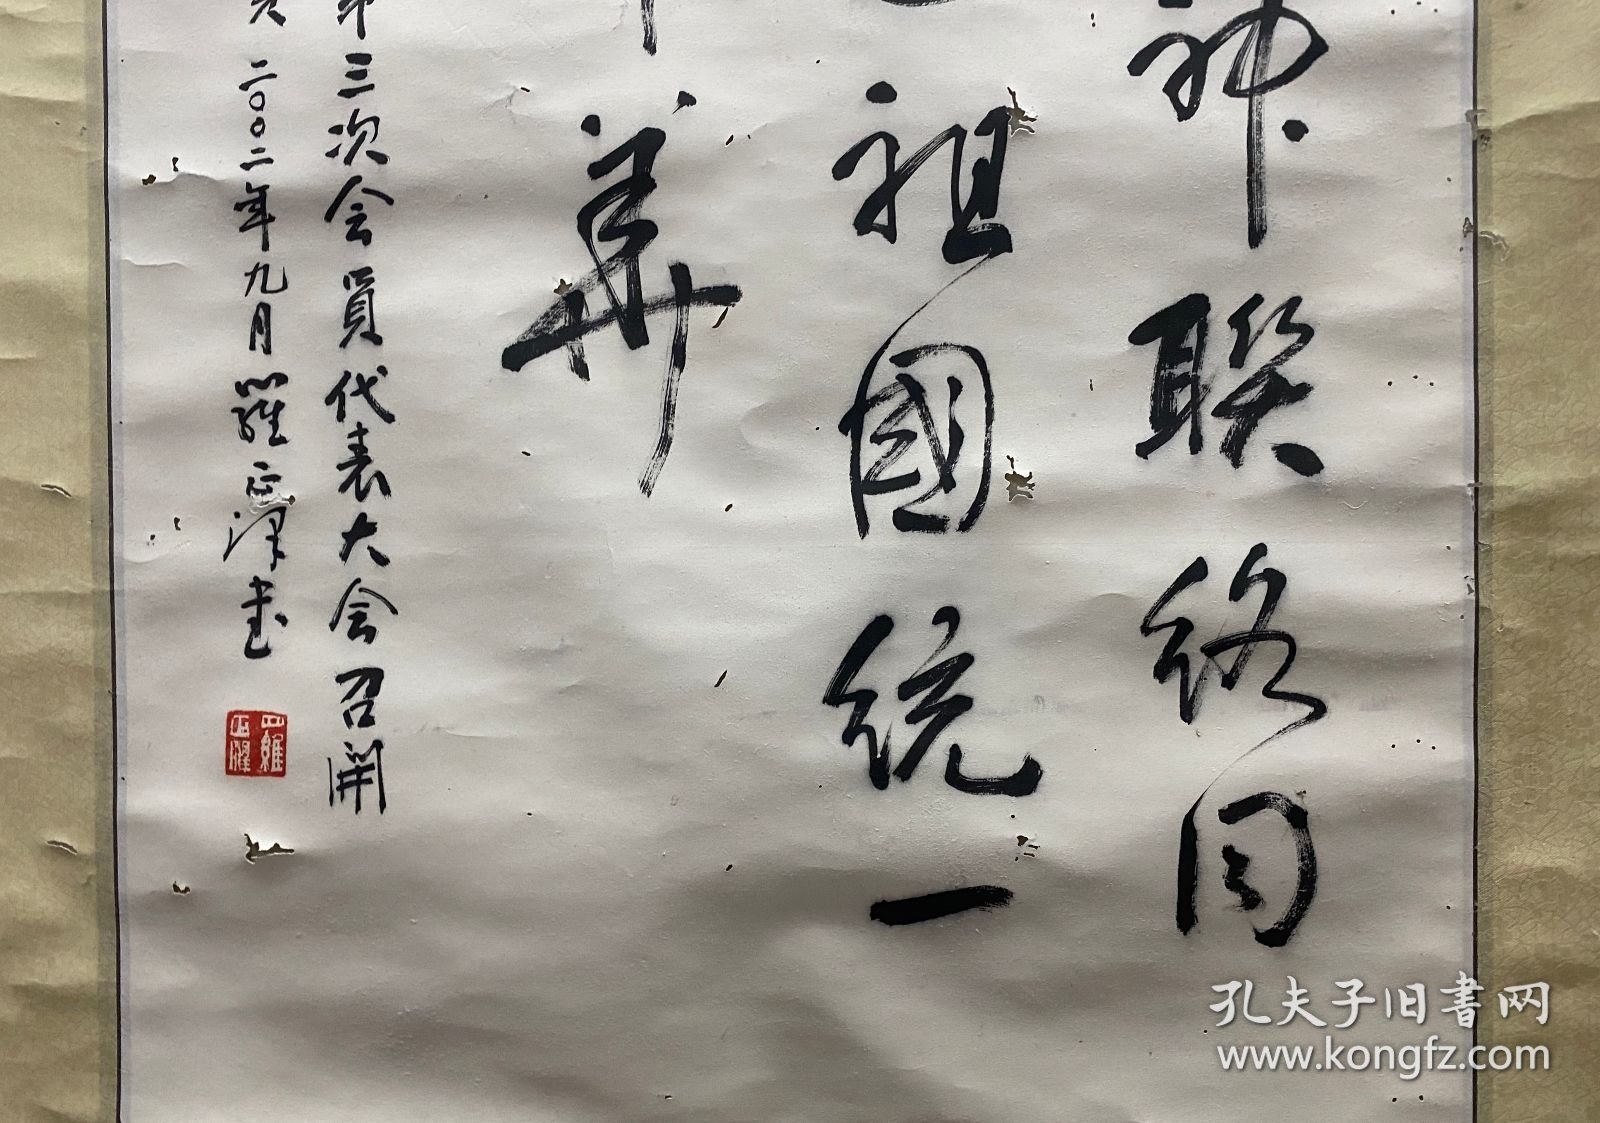 神联络同
祖國統一
華
第三次会員代表大会召開
二〇〇二年九月羅正泽书
孔夫子旧書网
www.kongfz.com